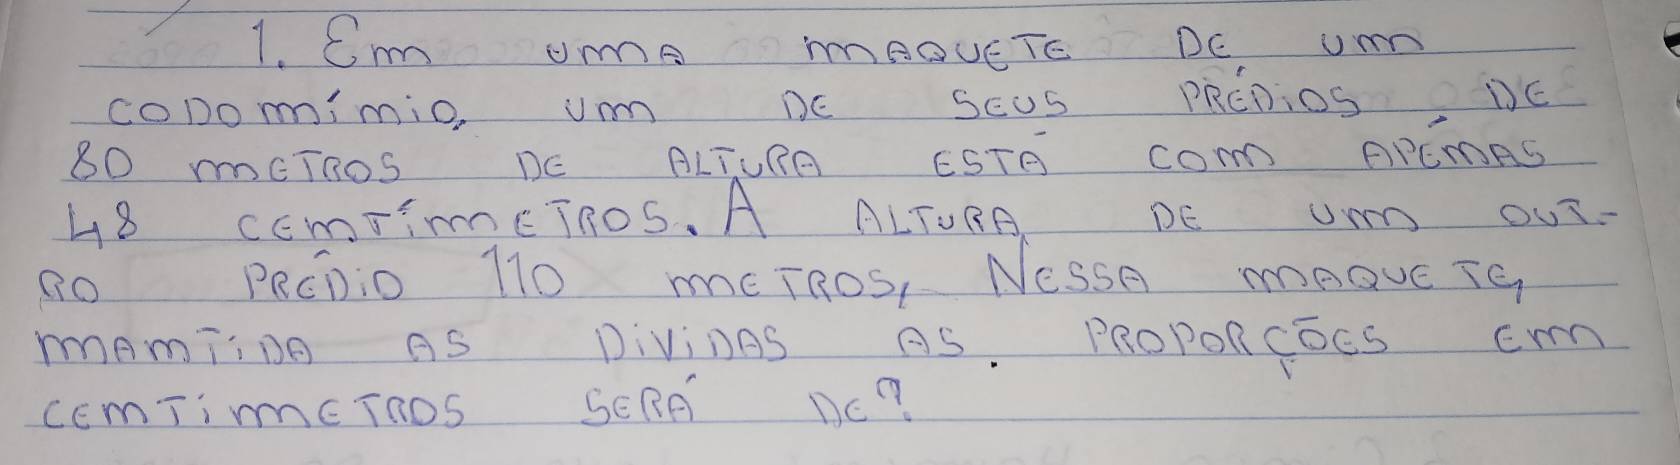 1. Em uma maquete DE um
CODOMÍMIO, um DE SEUS PRÉDIOS DE
80 METROS DE ALTURA ESTÁ COM APÉMAS
48 CEMTÍMETROS. A ALTURA DE UM OUT-
RO PRÉDIO 110 METROS, NESSA MAQUETE,
MAMTIDA AS DIVIDAS AS PROPORÇÕES EM
CEMTIMETROS SERÁ DE?